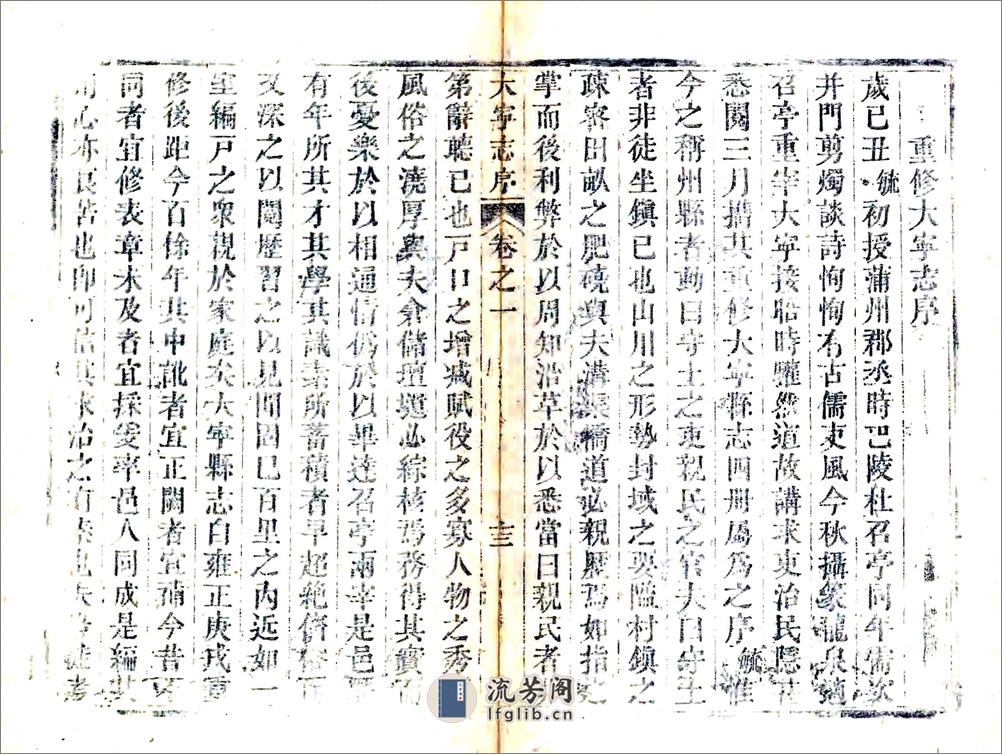 重修大寧志序
歲己丑毓初授蒲州郡丞時巴陵杜召亭同年需次
并門剪燭談詩恂恂有古儒吏風今秋攝篆龍泉適
召亭重宰大寧接晤時驩然道故講求吏治民隱甚
悉閱三月攜其重修大寧縣志四冊屬為之序毓惟
今之稱州縣者動曰守土之吏親民之官夫曰守土
者非徒坐鎮已也山川之形勢封域之要隘村鎮之
疎密田畝之肥磽與夫溝渠橋道必親歷焉如指之
掌而後利弊於以周知沿革於以悉當曰親民者
大寧志序 卷之一 十三
第辭聽已也戶口之增減賦役之多寡人物之秀
風俗之澆厚與夫倉儲壇壝必綜核焉務得其實而
後憂樂於以相通情偽於以畢達召亭兩宰是邑
有年所其才其學其識素所蓄積者早超絕儕俗
又深之以閱歷習之以見聞固已百里之內近如一
室編戶之眾親於家庭矣大寧縣志自雍正庚戌重
修後距今百餘年其中訛者宜正闕者宜補今昔
同者宜修表章未及者宜採爰率邑人同成是編其
用心亦良苦也即可信其求治之有素也夫